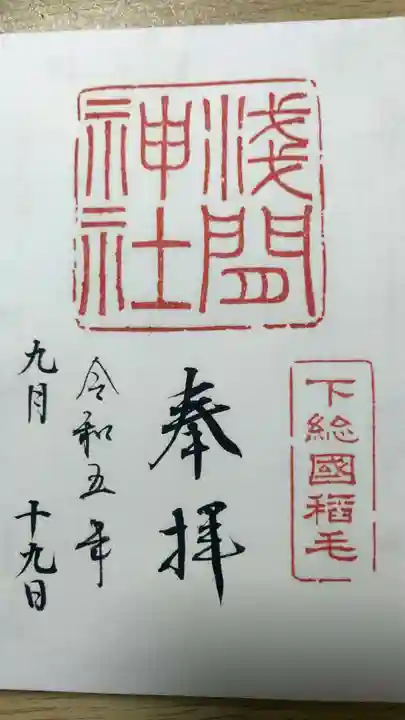 淺間
神社
下総國稲毛
奉拝
令和五年
九月十九日